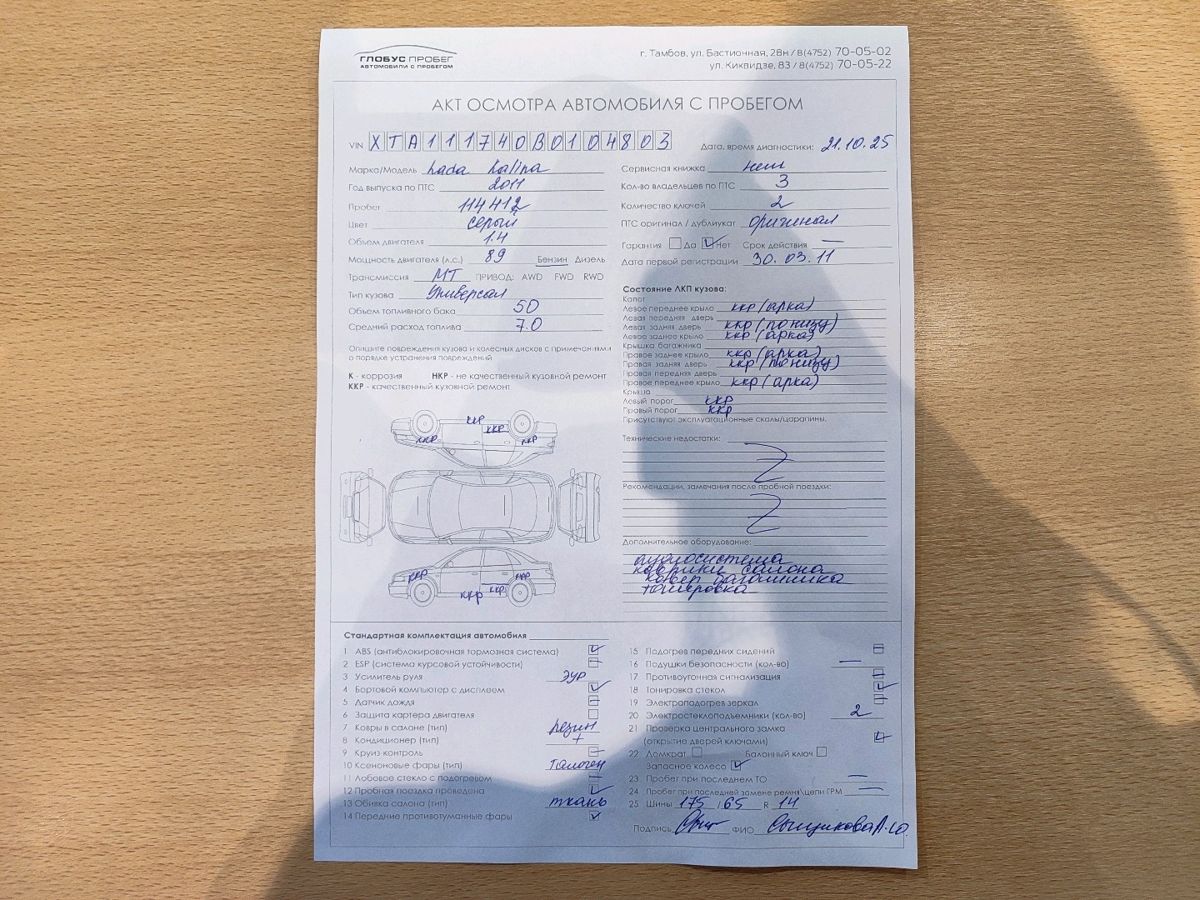 ГЛОБУС ПРОБЕГ
АВТОМОБИЛИ С ПРОБЕГОМ
г. Тамбов, ул. Бастионная, 28н / 8(4752) 70-05-02
ул. Киквидзе, 83 / 8(4752) 70-05-22
АКТ ОСМОТРА АВТОМОБИЛЯ С ПРОБЕГОМ
VIN XTA111740B0104803
Дата, время диагностики: 21.10.25
Марка/Модель Lada Kalina
Год выпуска по ПТС 2011
Пробег 114412
Цвет серый
Объем двигателя 1.4
Мощность двигателя (л.с.) 89 Бензин Дизель
Трансмиссия МТ ПРИВОД: AWD FWD RWD
Тип кузова Универсал
Объем топливного бака 50
Средний расход топлива 7.0
Опишите повреждения кузова и колесных дисков с примечаниями
о порядке устранения повреждений
К - коррозия НКР - не качественный кузовной ремонт
ККР - качественный кузовной ремонт
ккр ккр ккр ккр
ккр ккр ккр ккр
Сервисная книжка нет
Кол-во владельцев по ПТС 3
Количество ключей 2
ПТС оригинал / дубликат Оригинал
Гарантия Да Нет Срок действия —
Дата первой регистрации 30.03.11
Состояние ЛКП кузова:
Капот
Левое переднее крыло ккр (арка)
Левая передняя дверь
Левая задняя дверь ккр (по низу)
Левое заднее крыло ккр (арка)
Крышка багажника
Правое заднее крыло ккр (арка)
Правая задняя дверь ккр (по низу)
Правая передняя дверь
Правое переднее крыло ккр (арка)
Крыша
Левый порог ккр
Правый порог ккр
Присутствуют эксплуатационные сколы/царапины.
Технические недостатки:
Z
Рекомендации, замечания после пробной поездки:
Z
Дополнительное оборудование:
аудиосистема
коврики салона
ковер багажника
тонировка
Стандартная комплектация автомобиля
1 ABS (антиблокировочная тормозная система)
2 ESP (система курсовой устойчивости) —
3 Усилитель руля ЭУР
4 Бортовой компьютер с дисплеем
5 Датчик дождя —
6 Защита картера двигателя
7 Ковры в салоне (тип) резин
8 Кондиционер (тип) +
9 Круиз-контроль —
10 Ксеноновые фары (тип) галоген
11 Лобовое стекло с подогревом —
12 Пробная поездка проведена
13 Обивка салона (тип) ткань
14 Передние противотуманные фары
15 Подогрев передних сидений —
16 Подушки безопасности (кол-во) —
17 Противоугонная сигнализация —
18 Тонировка стекол
19 Электроподогрев зеркал —
20 Электростеклоподъемники (кол-во) 2
21 Проверка центрального замка
(открытие дверей ключами)
22 Домкрат Балонный ключ
Запасное колесо
23 Пробег при последнем ТО —
24 Пробег при последней замене ремня\цепи ГРМ —
25 Шины 175 / 65 R 14
Подпись ФИО Сыщикова А.Ю.